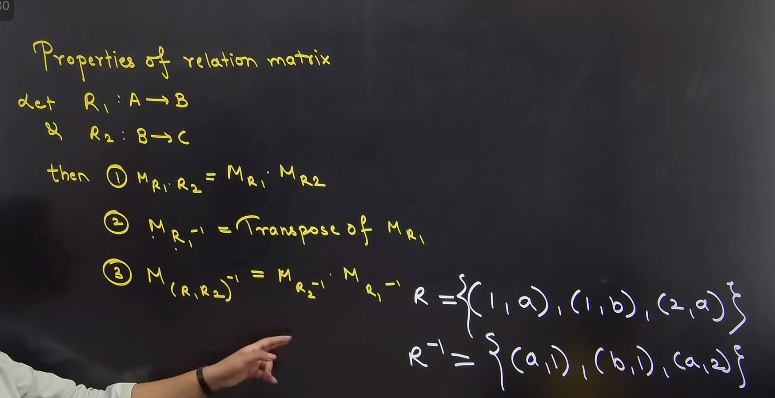 Properties of relation matrix
Let R₁ : A → B
& R₂ : B → C
then ① M_{R₁·R₂} = M_{R₁} · M_{R₂}
② M_{R₁⁻¹} = Transpose of M_{R₁}
③ M_{(R₁R₂)⁻¹} = M_{R₂⁻¹} · M_{R₁⁻¹}
R = {(1, a), (1, b), (2, a)}
R⁻¹ = {(a, 1), (b, 1), (a, 2)}